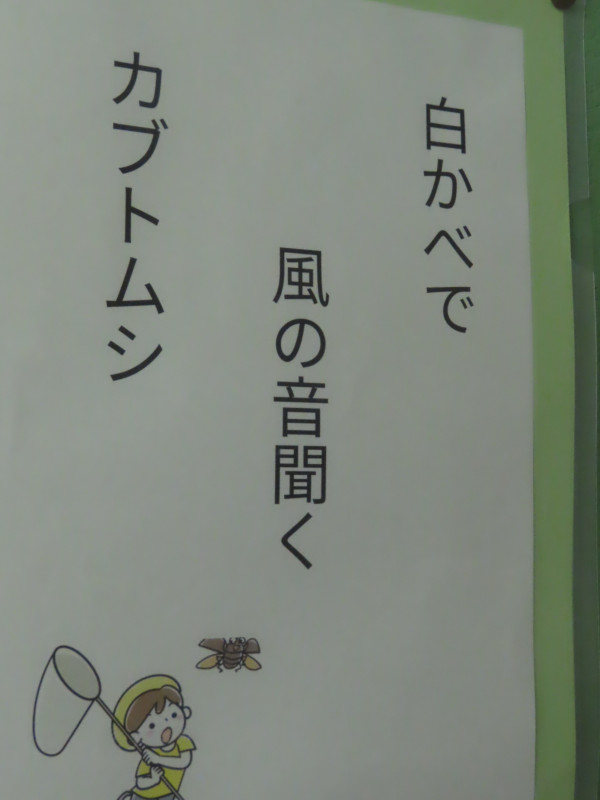 白かべで
風の音聞く
カブトムシ